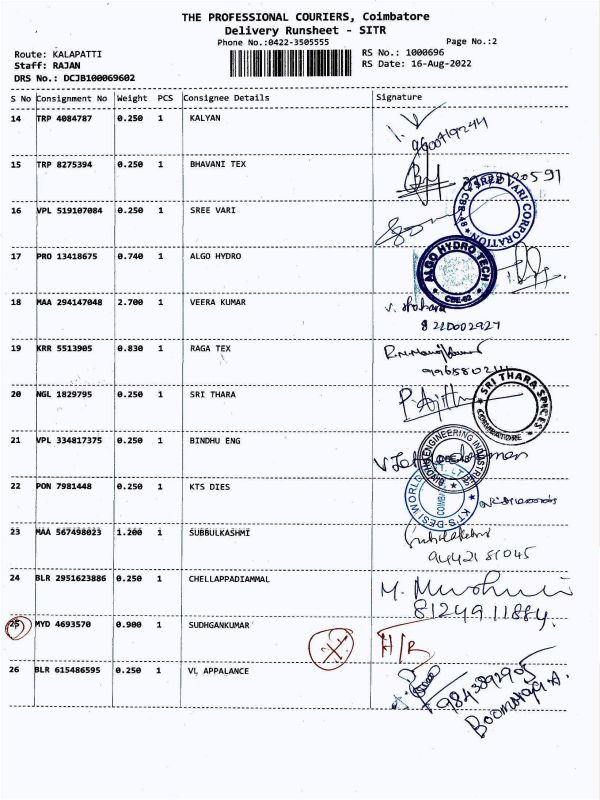 THE PROFESSIONAL COURIERS, Coimbatore
Delivery Runsheet - SITR
Phone No.:0422-3505555 Page No.:2
Route: KALAPATTI RS No.: 1000696
Staff: RAJAN RS Date: 16-Aug-2022
DRS No.: DCJB100069602
S No Consignment No Weight PCS Consignee Details Signature
14 TRP 4084787 0.250 1 KALYAN
15 TRP 8275394 0.250 1 BHAVANI TEX
16 VPL 519107084 0.250 1 SREE VARI
SREE VARI CORPORATION
17 PRO 13418675 0.740 1 ALGO HYDRO
ALGO HYDRO TECH
CBE-62
18 MAA 294147048 2.700 1 VEERA KUMAR
8220002927
19 KRR 5513905 0.830 1 RAGA TEX
20 NGL 1829795 0.250 1 SRI THARA
SRI THARA SPICES
COIMBATORE
21 VPL 334817375 0.250 1 BINDHU ENG
BINDHU ENGINEERING INDUSTRIES
22 PON 7981448 0.250 1 KTS DIES
KT'S-DESI WORLD
23 MAA 567498023 1.200 1 SUBBULKASHMI
9442181045
24 BLR 2951623886 0.250 1 CHELLAPPADIAMMAL
8124911884.
25 MYD 4693570 0.900 1 SUDHGANKUMAR H/R
26 BLR 615486595 0.250 1 VL APPALANCE
9843892905